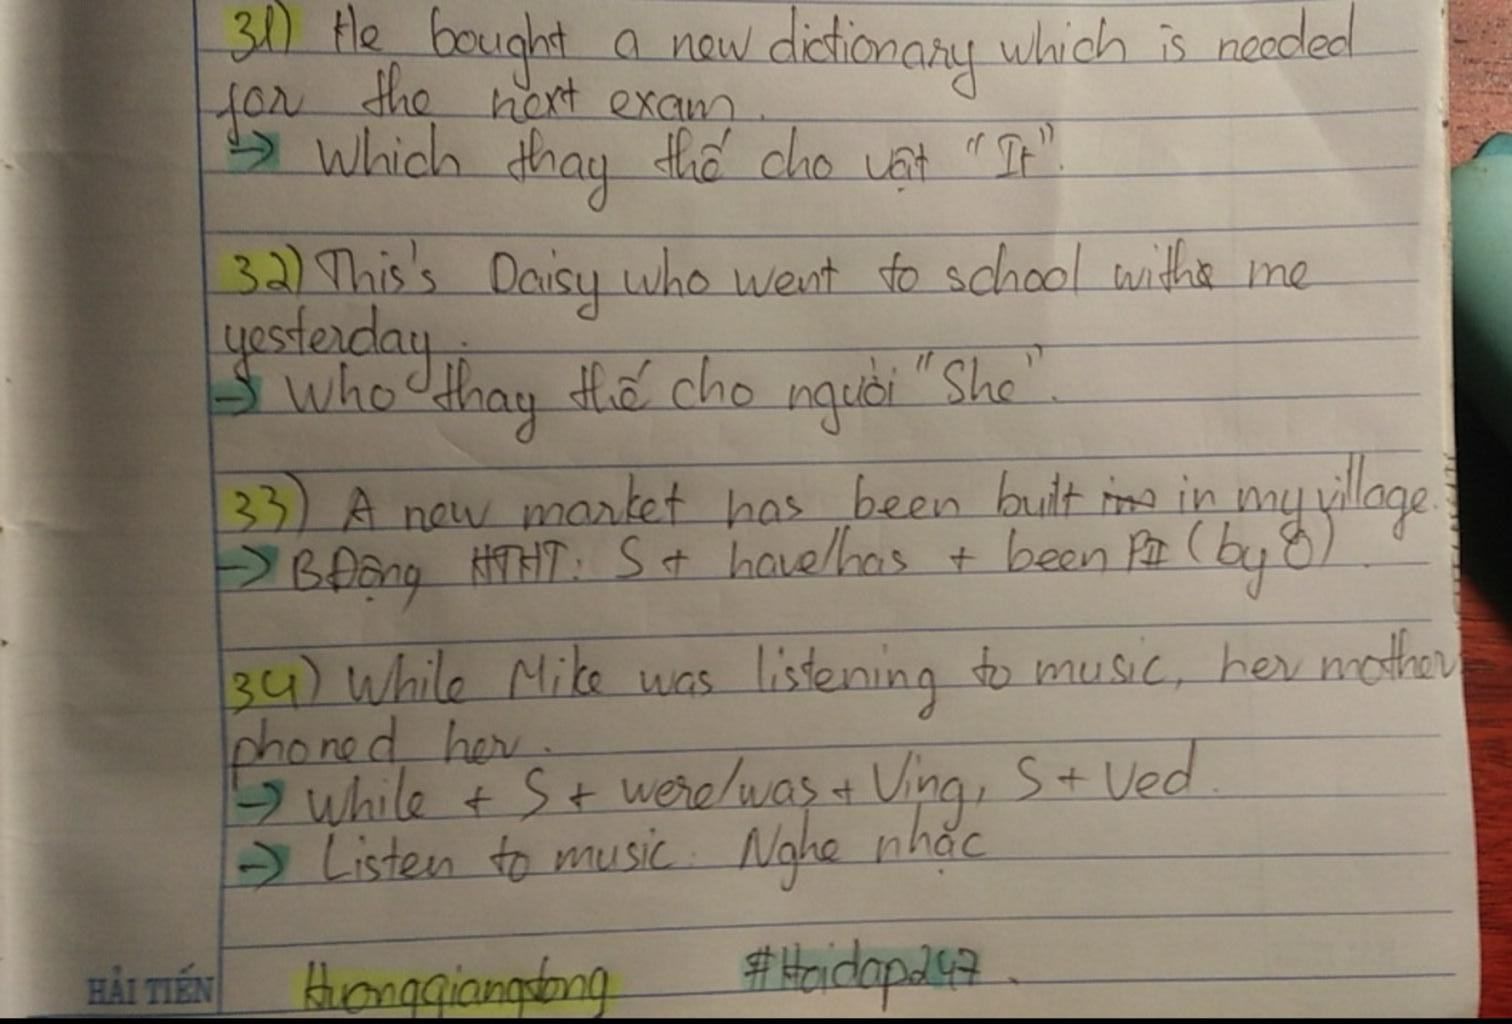 31) He bought a new dictionary which is needed
for the next exam.
→ Which thay thế cho vật "It".
32) This's Daisy who went to school with me
yesterday.
→ Who thay thế cho người "She".
33) A new market has been built in my village.
→ BĐộng HTHT: S + have/has + been PII (by O).
34) While Mike was listening to music, her mother
phoned her.
→ While + S + were/was + Ving, S + Ved.
→ Listen to music: Nghe nhạc
HẢI TIẾN
Huonggiangdong #Hoidap247.